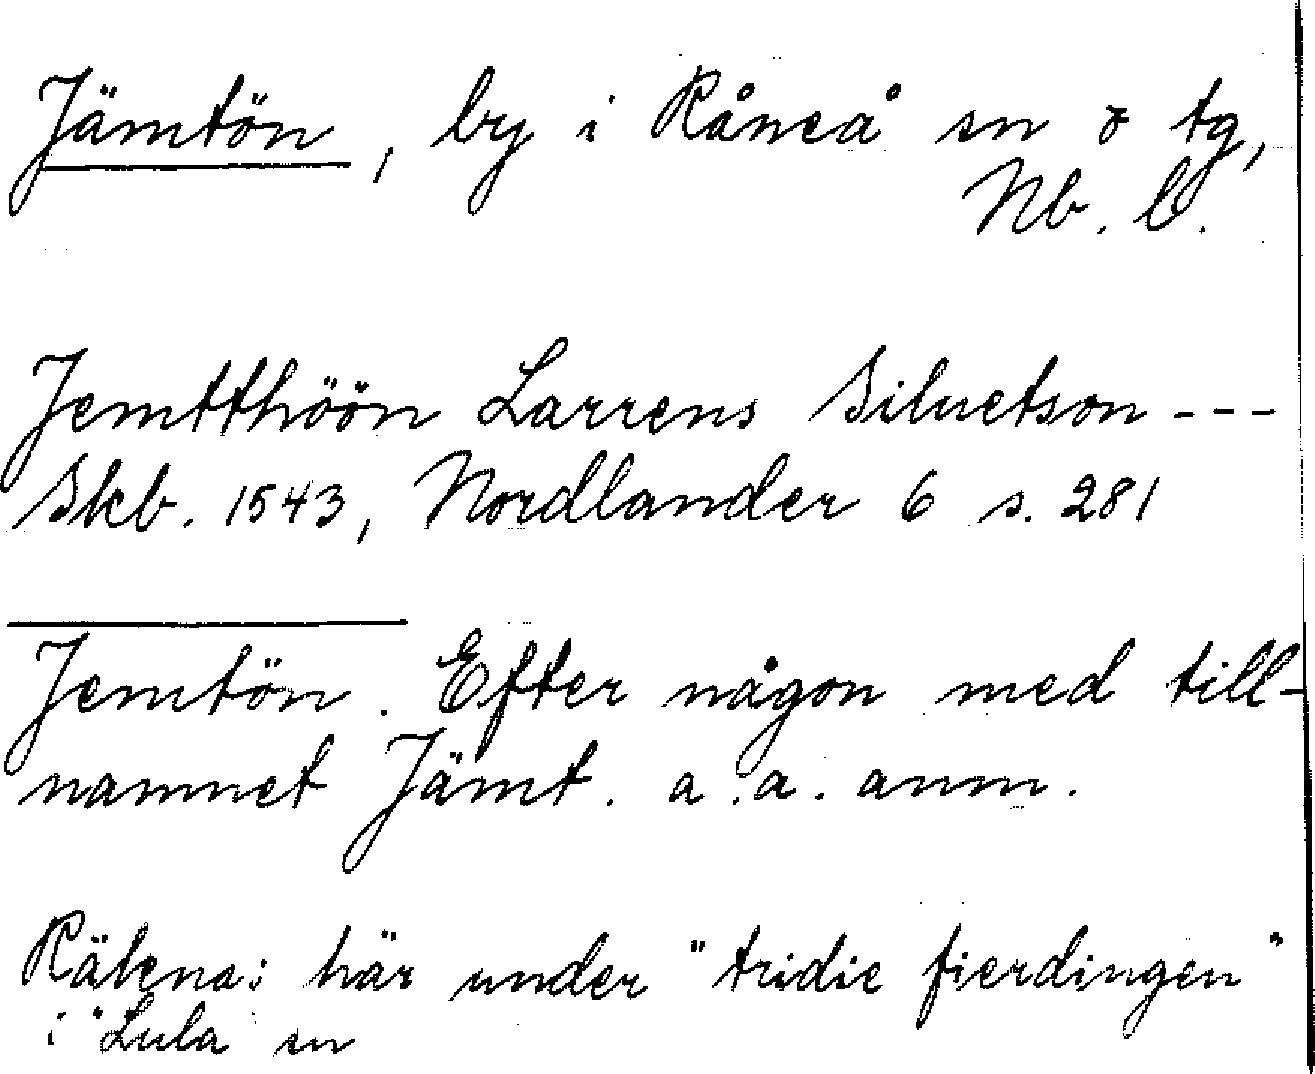 Jämtön, by i Råneå sn o tg,
Nb. l.
Jemtthöön Larrens Siluetson ---
Skb. 1543, Nordlander 6 s. 281
Jemtön. Efter någon med till-
namnet Jämt. a.a. anm.
Räkena: här under "tridie fierdingen"
i "Lula sn